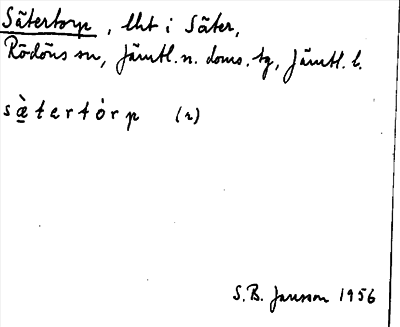 Sätertorp, lht i Säter,
Rödöns sn, Jämtl. n. doms. tg, Jämtl. l.
sæ̀tertórp (r)
S.B. Jansson 1956